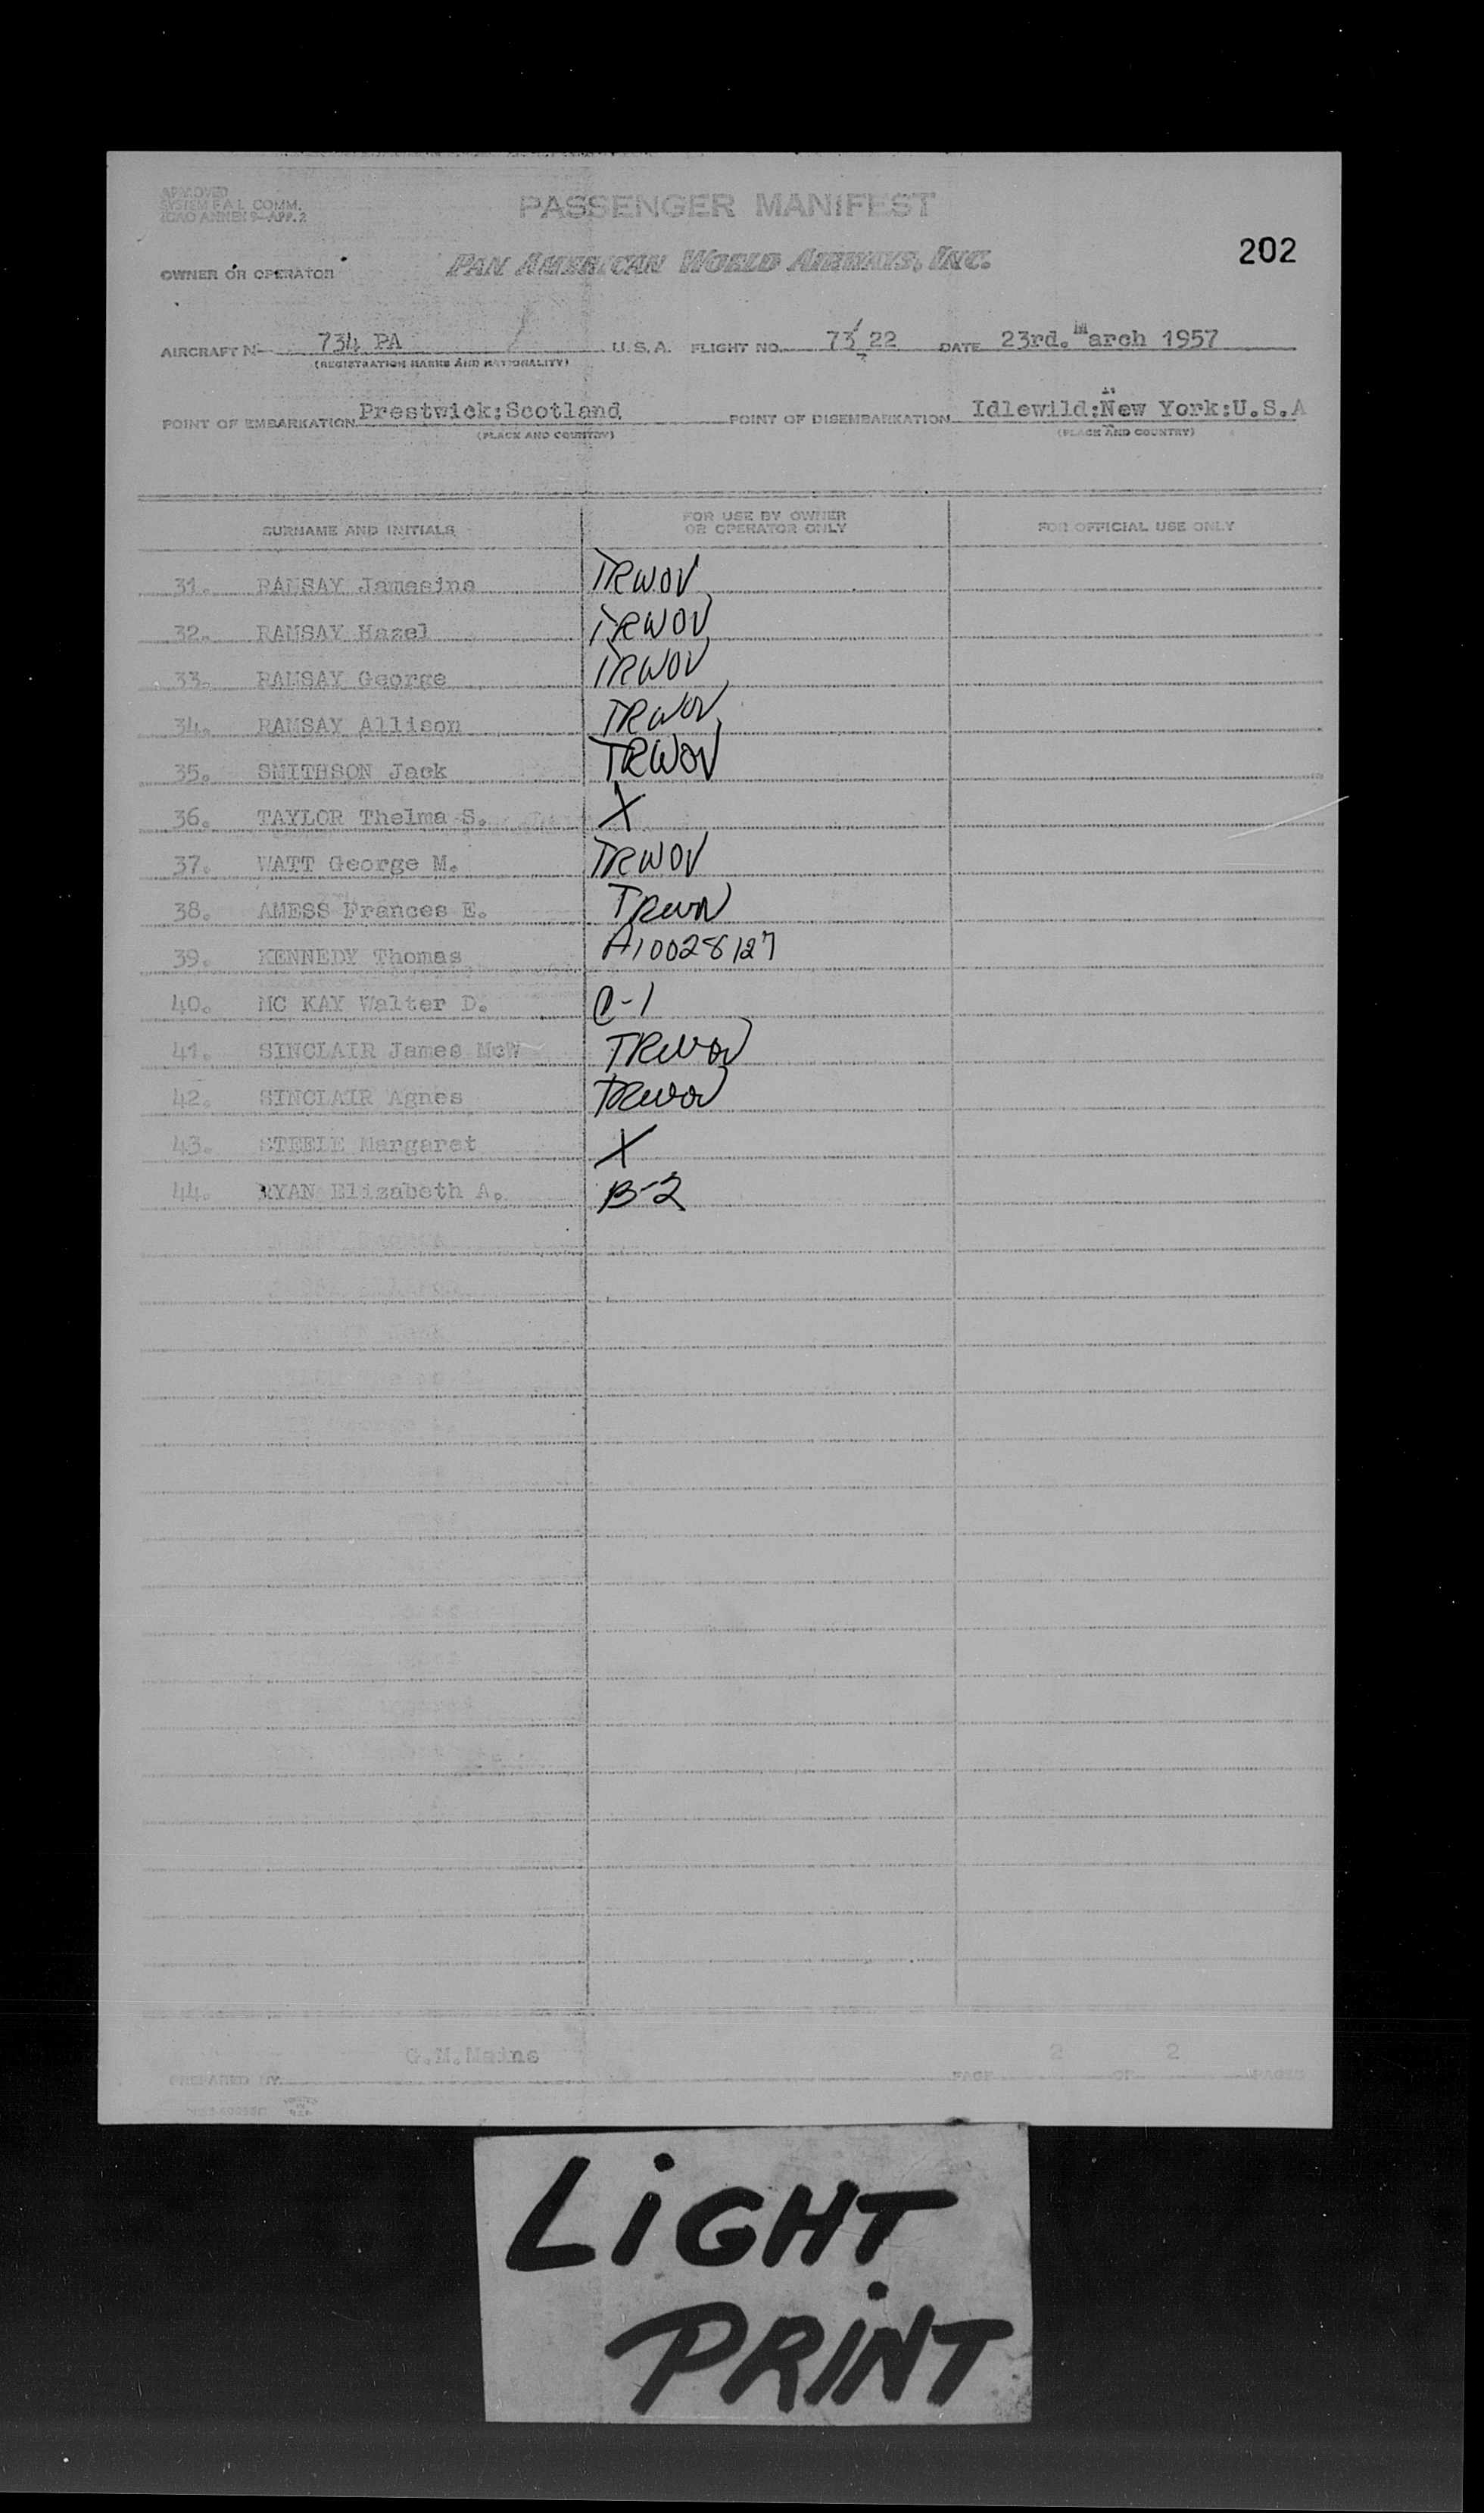 APPROVED
SYSTEM F.A.L. COMM.
ICAO ANNEX 9-APP. 2
PASSENGER MANIFEST
202
OWNER OR OPERATOR PAN AMERICAN WORLD AIRWAYS, INC.
AIRCRAFT No 734 PA U.S.A. FLIGHT NO. 73/22 DATE 23rd. March 1957
(REGISTRATION MARKS AND NATIONALITY)
POINT OF EMBARKATION Prestwick:Scotland POINT OF DISEMBARKATION Idlewild:New York:U.S.A
(PLACE AND COUNTRY) (PLACE AND COUNTRY)
SURNAME AND INITIALS FOR USE BY OWNER OR OPERATOR ONLY FOR OFFICIAL USE ONLY
31. RAMSAY Jamesina TRWOV
32. RAMSAY Hazel TRWOV
33. RAMSAY George TRWOV
34. RAMSAY Allison TRWOV
35. SMITHSON Jack TRWOV
36. TAYLOR Thelma S. X
37. WATT George M. TRWOV
38. AMESS Frances E. TRWOV
39. KENNEDY Thomas A10028127
40. MC KAY Walter D. C-1
41. SINCLAIR James McW TRWOV
42. SINCLAIR Agnes TRWOV
43. STEELE Margaret X
44. RYAN Elizabeth A. B-2
PREPARED BY G.M.Mains PAGE 2 OF 2 PAGES
LIGHT
PRINT